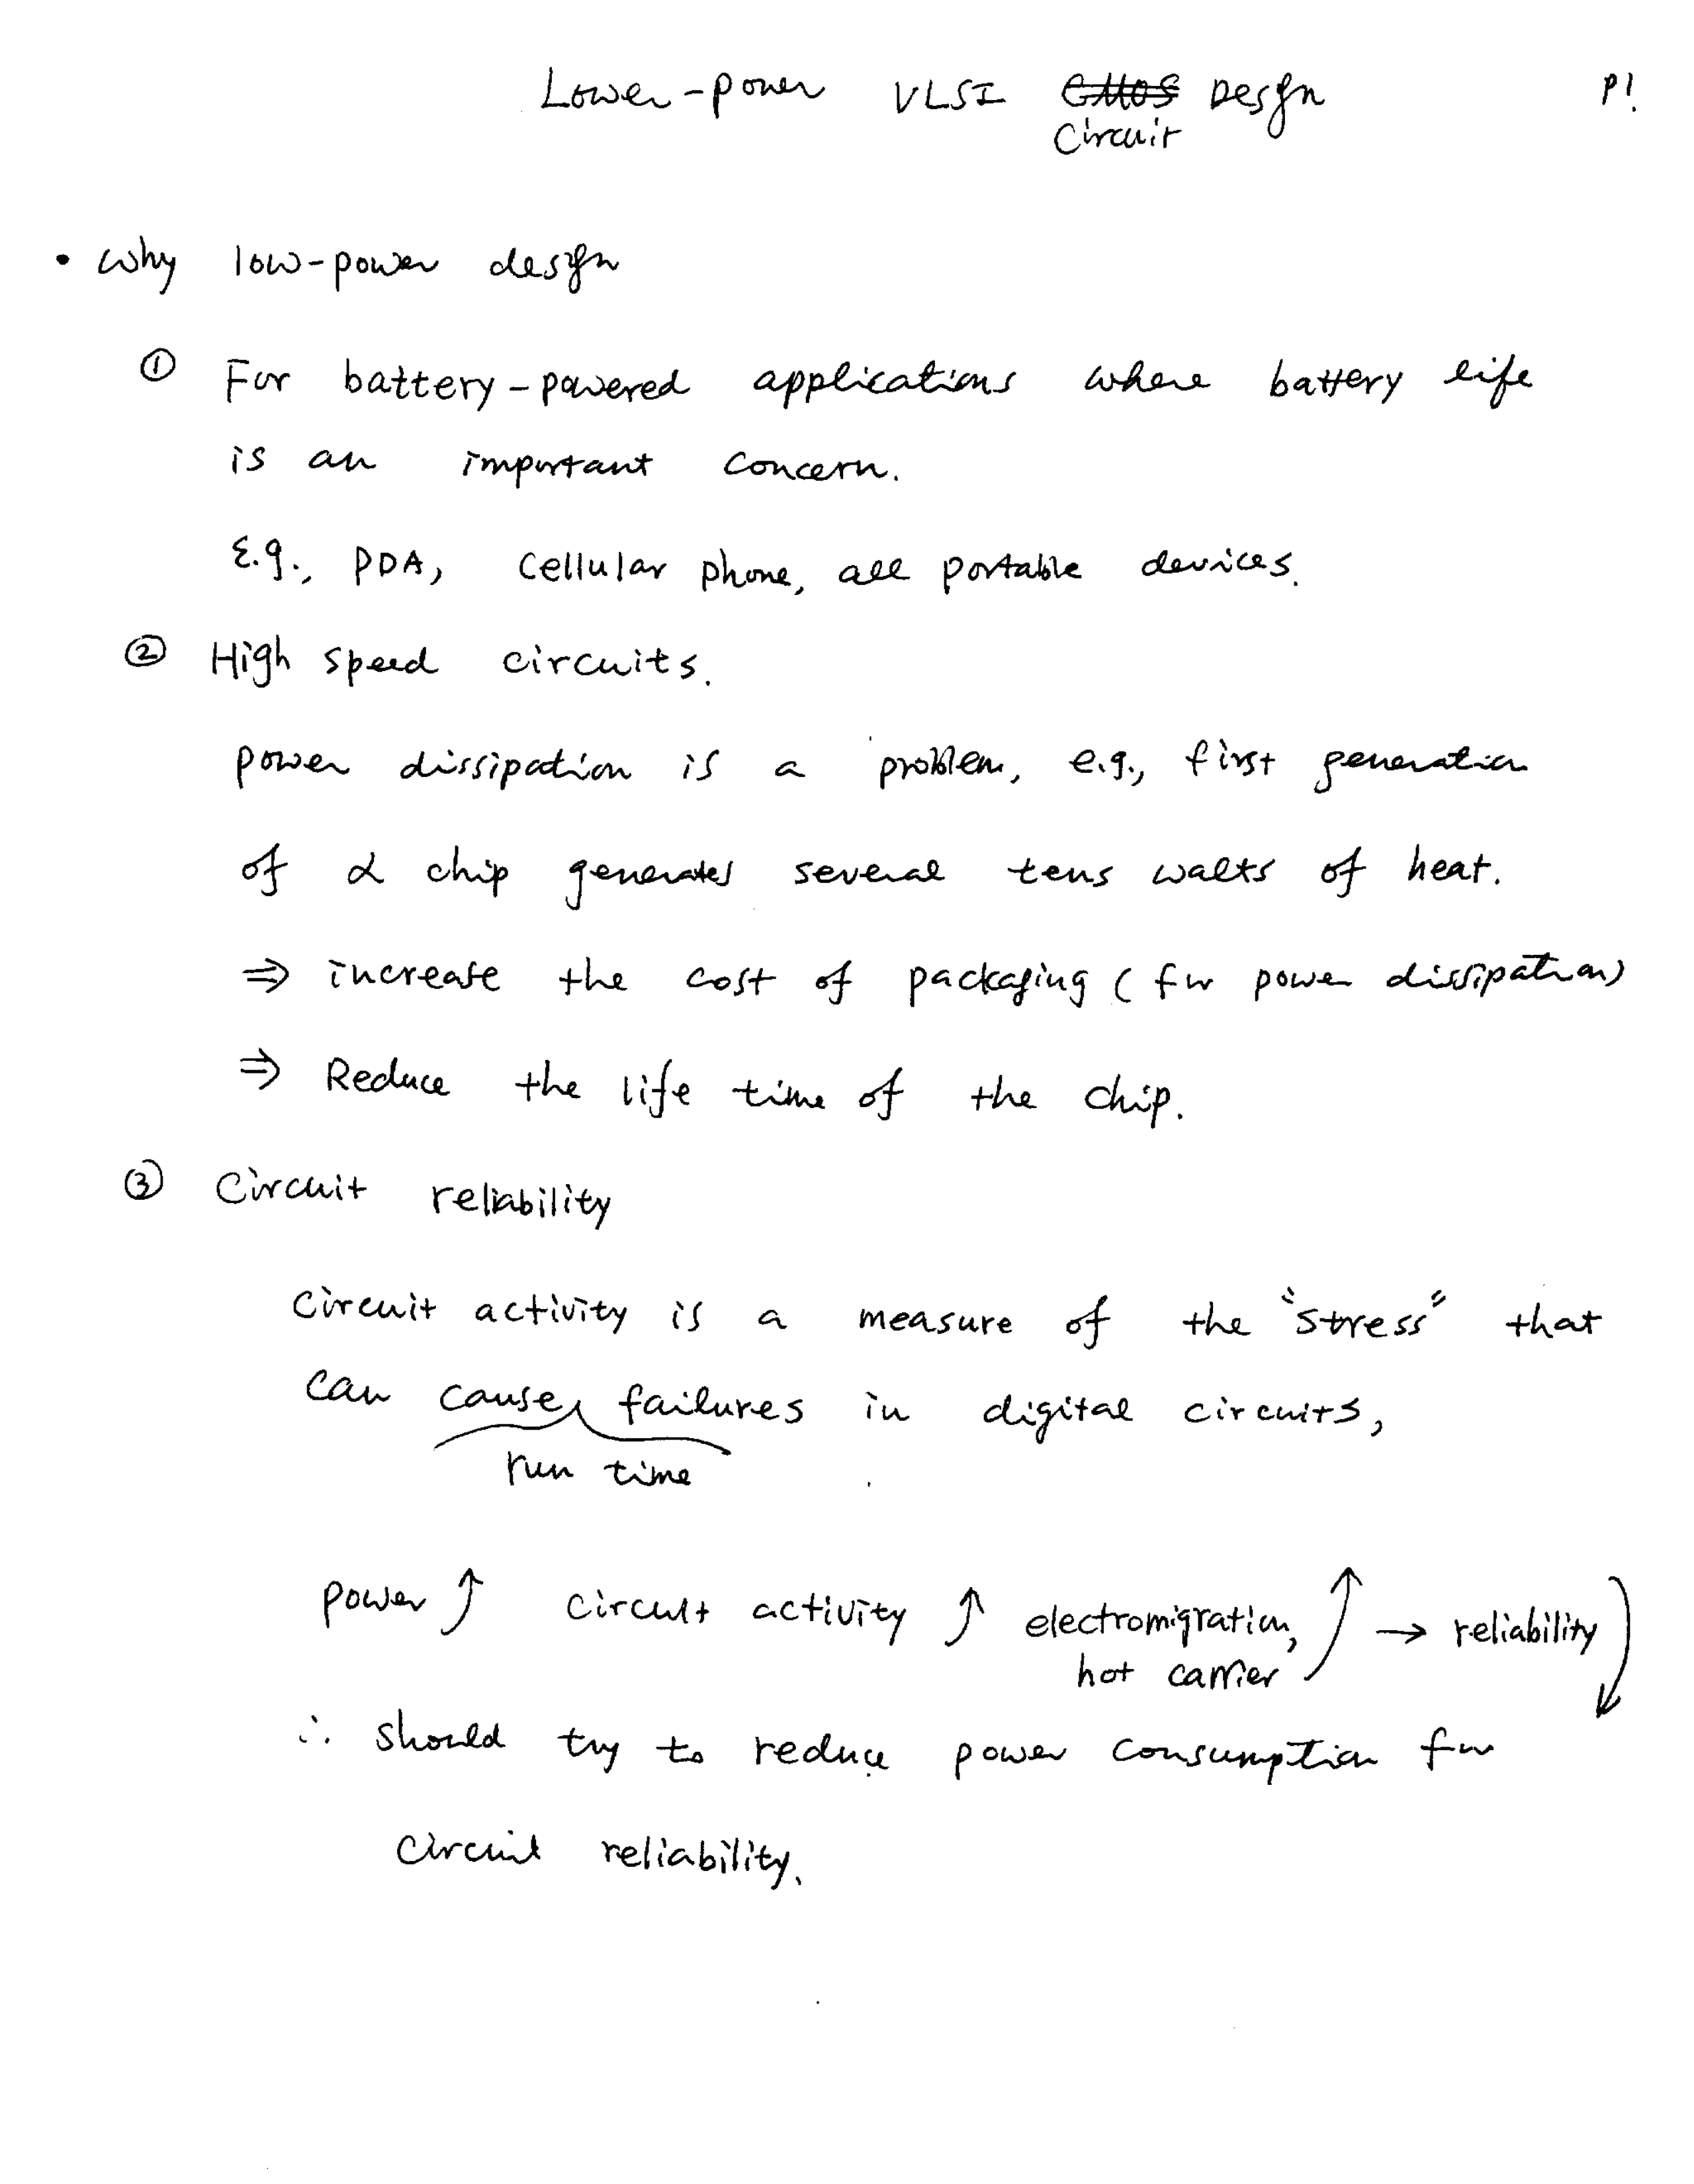 Lower-power VLSI CMOS Design P1.
Circuit
• Why low-power design
① For battery-powered applications where battery life
is an important concern.
E.g., PDA, Cellular phone, all portable devices.
② High speed circuits.
power dissipation is a problem, e.g., first generation
of α chip generates several tens watts of heat.
⇒ increase the cost of packaging (for power dissipation)
⇒ Reduce the life time of the chip.
③ Circuit reliability
Circuit activity is a measure of the "stress" that
can cause failures in digital circuits,
run time
power ↑ circuit activity ↑ electromigration, ↑ → reliability ↓
hot carrier
∴ should try to reduce power consumption for
circuit reliability.